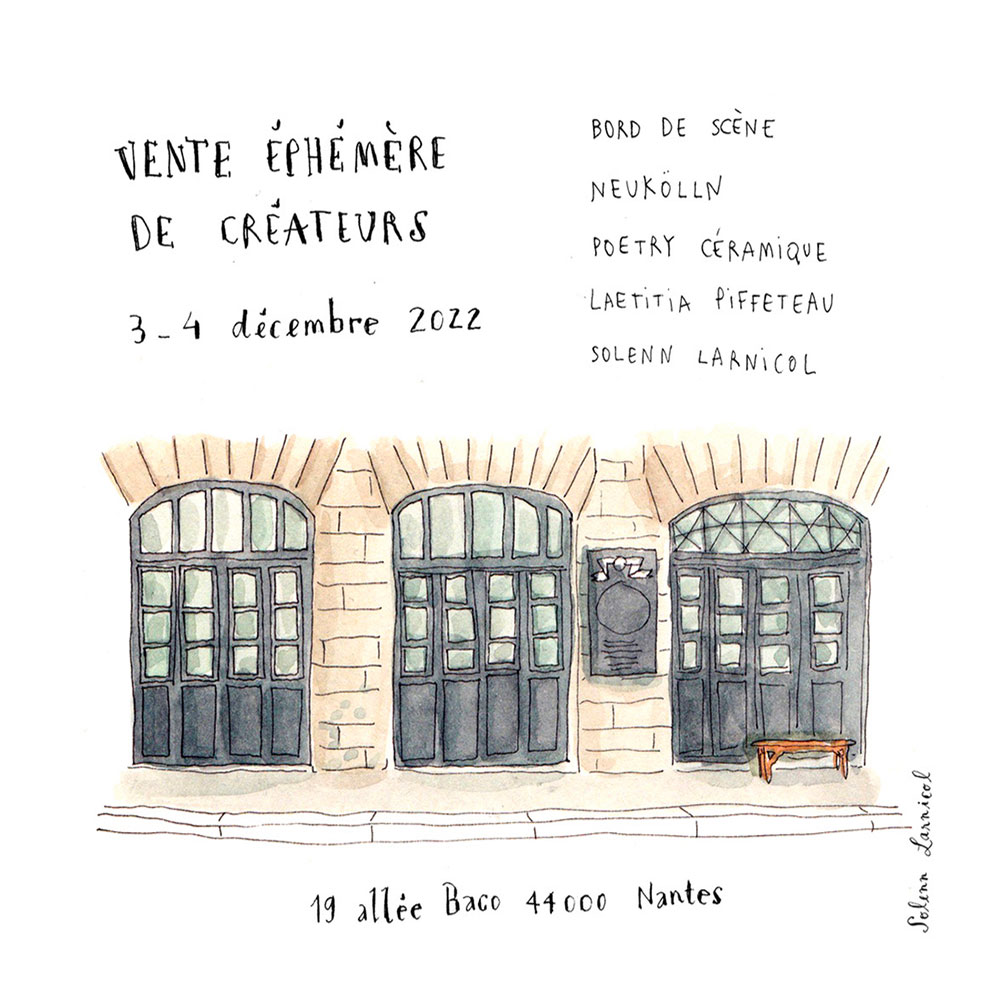 VENTE ÉPHÉMÈRE
DE CRÉATEURS
3-4 décembre 2022
BORD DE SCÈNE
NEUKÖLLN
POETRY CÉRAMIQUE
LAETITIA PIFFETEAU
SOLENN LARNICOL
19 allée Baco 44000 Nantes
Solenn Larnicol